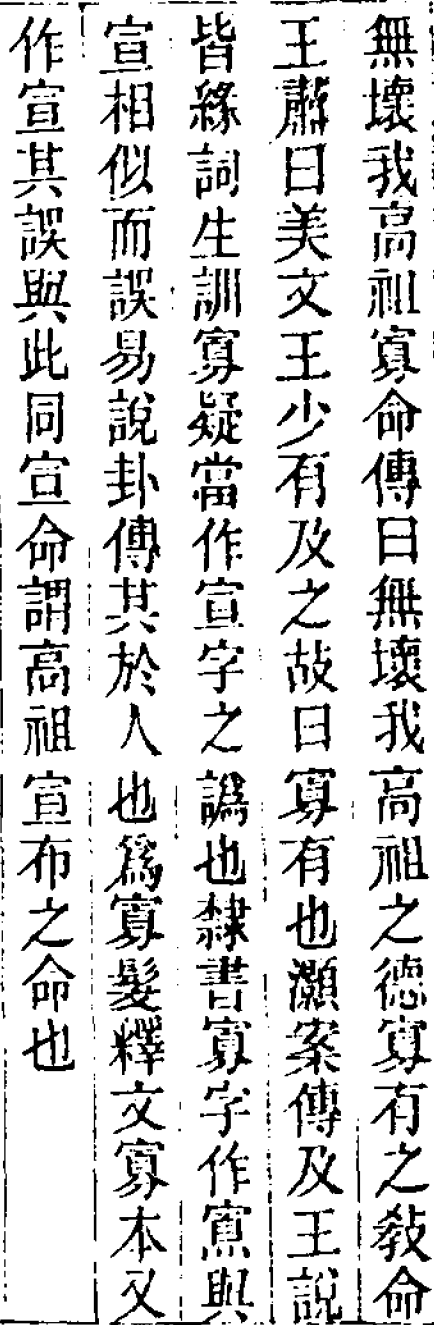 無壞我高祖寡命傳曰無壞我高祖之德寡有之敎命
王肅曰美文王少有及之故曰寡有也灝案傳及王說
皆緣詞生訓寡疑當作宣字之譌也隸書寡字作㝢與
宣相似而誤易說卦傳其於人也爲寡髮釋文寡本又
作宣其誤與此同宣命謂高祖宣布之命也